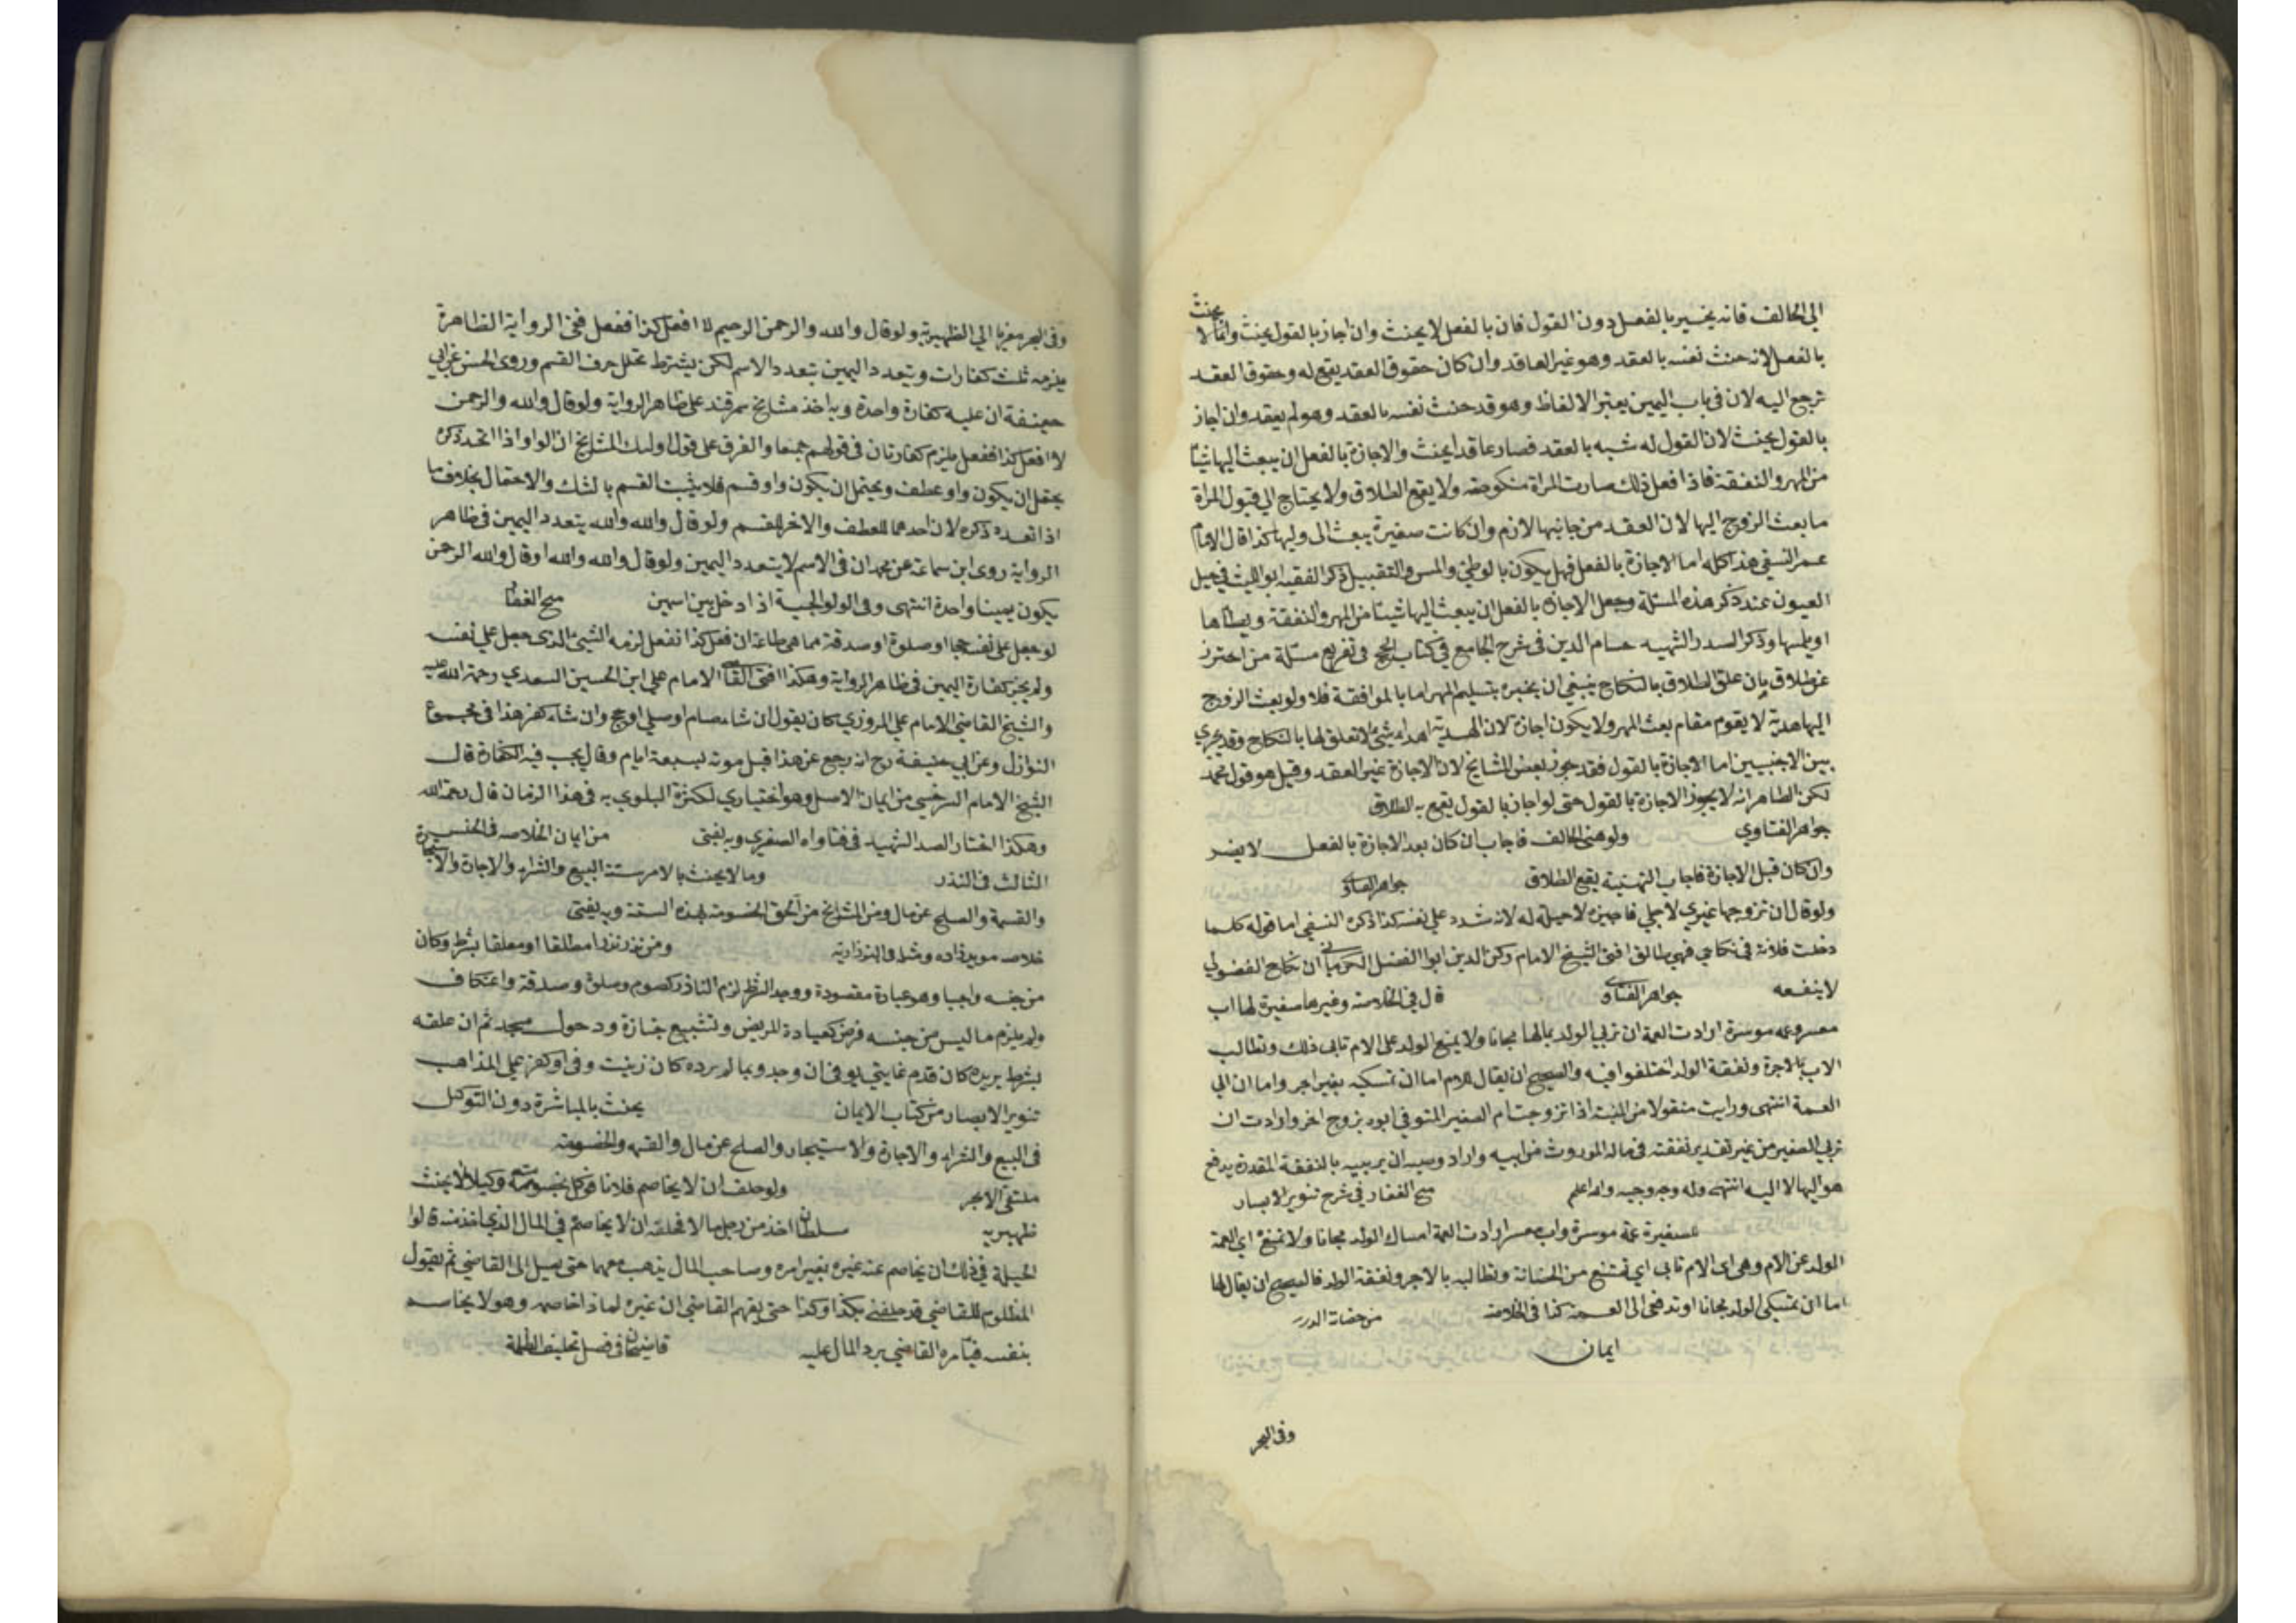 الى الحالف فانه يخير بالفعل دون القول فان بالفعل لا يحنث وان اجاز بالقول يحنث وانما لا يحنث
بالفعل لانه حنث نفسه بالعقد وهو غير العاقد وان كان حقوق العقد يقع له وحقوق العقد
ترجع اليه لان في باب اليمين يعتبر الالفاظ وهو قد حنث نفسه بالعقد وهو لم يعقد وان اجاز
بالقول يحنث لان القول له شبه بالعقد فصار عاقدا يحنث والاجازة بالفعل ان يبعث اليها شيئا
من المهر والنفقة فاذا فعل ذلك صارت المراة منكوحته ولا يقع الطلاق ولا يحتاج الي قبول المراة
ما بعث الزوج اليها لان العقد من جانبها لازم وان كانت صغيرة يبعث الى وليها كذا قال الامام
عمر النسفي هذا كله اما الاجازة بالفعل فهل يكون بالوطئ والمس والتقبيل ذكر الفقيه ابو الليث في حيل
العيون عند ذكر هذه المسئلة وجعل الاجازة بالفعل ان يبعث اليها شيئا من المهر والنفقة ويطاها
او يلمسها وذكر الصدر الشهيد حسام الدين في شرح الجامع في كتاب الحج في تفريع مسئلة من احترز
عن طلاق بان علق الطلاق بالنكاح ينبغي ان يخبره بتسليم المهر اما بالموافقة فلا ولو بعث الزوج
اليها هدية لا يقوم مقام بعث المهر ولا يكون اجازة لان الهدية اهداء شئ لا تعلق لها بالنكاح وقد يجري
بين الاجنبيين اما الاجازة بالقول فقد جوز بعض المشايخ لان الاجازة غير العقد وقيل هو قول محمد
لكن الظاهر انه لا يجوز الاجازة بالقول حتى لو اجاز بالقول يقع به الطلاق
جواهر الفتاوي ولو هنى الحالف فاجاب ان كان بعد الاجازة بالفعل لا يضر
وان كان قبل الاجازة فاجاب التهنية يقع الطلاق جواهر الفتاوى
ولو قال ان تزوجها غيري لاجلي فاجيزه لا حيلة له لانه شدد علي نفسه كذا ذكره النسفي اما قوله كلما
دخلت فلانة في نكاحي فهي طالق افتى الشيخ الامام ركن الدين ابو الفضل الكرماني ان نكاح الفضولي
لا ينفعه جواهر الفتاوى قال في الخلاصة وغيرها صغيرة لها اب
معسر وعمة موسرة ارادت العمة ان تربي الولد بمالها مجانا ولا يمنع الولد على الام تابى ذلك وتطالب
الاب بالاجرة ونفقة الولد اختلفوا فيه والصحيح ان يقال للام اما ان تمسكيه بغير اجر واما ان الي
العمة انتهى ورايت منقولا من المنية اذا تزوجت ام الصغير المتوفي ابوه بزوج اخر وارادت ان
تربي الصغير من غير تقدير نفقته في ماله الموروث من ابيه واراد وصيه ان يربيه بالنفقة المقدرة يدفع
هو اليها لا اليه انتهى وله وجه وجيه والله اعلم منح الغفار في شرح تنوير الابصار
صغيرة عمة موسرة واب معسر ارادت العمة امساك الولد مجانا ولا تمنع اي العمة
الولد عن الام وهي اى الام تابى اي تمتنع من الحضانة وتطالبه بالاجر ونفقة الولد فالصحيح ان يقال لها
اما ان تمسكي الولد مجانا او تدفعي الى العمة كذا في الخلاصة من حضانة الدرر
ايمان
وفى البحر
وفى البحر معزيا الي الظهيرية ولو قال والله والرحمن الرحيم لا افعل كذا ففعل ففى الرواية الظاهرة
يلزمه ثلث كفارات ويتعدد اليمين بتعدد الاسم لكن يشترط تخلل حرف القسم وروى الحسن عن ابي
حنيفة ان عليه كفارة واحدة وبه اخذ مشايخ سمرقند على ظاهر الرواية ولو قال والله والرحمن
لا افعل كذا ففعل يلزم كفارتان في قولهم جميعا والفرق على قول اولئك المشايخ ان الواو اذا اتحد ذكره
يحتمل ان يكون واو عطف ويحتمل ان يكون واو قسم فلا يثبت القسم بالشك والاحتمال بخلاف ما
اذا تعدد ذكره لان احدهما للعطف والاخر للقسم ولو قال والله والله يتعدد اليمين في ظاهر
الرواية روى ابن سماعة عن محمد ان في الاسم لا يتعدد اليمين ولو قال والله والله او قال والله الرحمن
يكون يمينا واحدة انتهى وفى الولوالجية اذا ادخل بين اسمين منح الغفار
لو جعل على نفسه حجا او صلوة او صدقة مما هى طاعة ان فعل كذا ففعل لزمه الشيئ الذى جعل علي نفسه
ولم يجز كفارة اليمين في ظاهر الرواية وهكذا افتى القاضي الامام علي ابن الحسين السعدي رحمة الله عليه
والشيخ القاضي الامام علي المروزي كان يقول ان شاء صام او صلى او حج وان شاء كفر هذا في مجموع
النوازل وعن ابي حنيفة رح انه رجع عن هذا قبل موته بسبعة ايام وقال يجب فيه الكفارة قال
الشيخ الامام السرخسي من ايمان الاصل وهو اختياري لكثرة البلوي به في هذا الزمان قال رحمه الله
وهكذا اختار الصدر الشهيد في فتاواه الصغرى وبه يفتى من ايمان الخلاصه في الجنس
الثالث في النذر وما لا يحنث بالامر ستة البيع والشراء والاجارة والاستيجار
والقسمة والصلح عن مال ومن المشايخ من الحق الخصومة بهذه الستة وبه يفتى
خلاصه مويد زاده ومثله في البزازية ومن نذر نذرا مطلقا او معلقا بشرط وكان
من جنسه واجبا وهو عبادة مقصودة ووجد الشرط لزم الناذر كصوم وصلوة وصدقة واعتكاف
ولم يلزم ما ليس من جنسه فرض كعيادة المريض وتشييع جنازة ودخول مسجد ثم ان علقه
بشرط يريده كان قدم غايبي يوفي ان وجد وبما لم يرده كان زنيت وفى او كفر على المذاهب
تنوير الابصار من كتاب الايمان يحنث بالمباشرة دون التوكيل
في البيع والشراء والاجارة والاستيجار والصلح عن مال والقسمة والخصومة
ملتقى الابحر ولو حلف ان لا يخاصم فلانا فوكل بخصومته وكيلا لا يحنث
ظهيريه سلطان اخذ من رجل مالا فحلفه ان لا يخاصم في المال الذي اخذ منه قالوا
الحيلة في ذلك ان يخاصم عنه غيره بغير امره وصاحب المال يذهب معهما حتى يصل الى القاضي ثم يقول
المظلوم للقاضي قد حلفني بكذا وكذا حتى يفهم القاضي ان غيره لماذا خاصمه وهو لا يخاصم
بنفسه فيامره القاضي برد المال عليه قاضيخان في فصل تحليف الظلمة